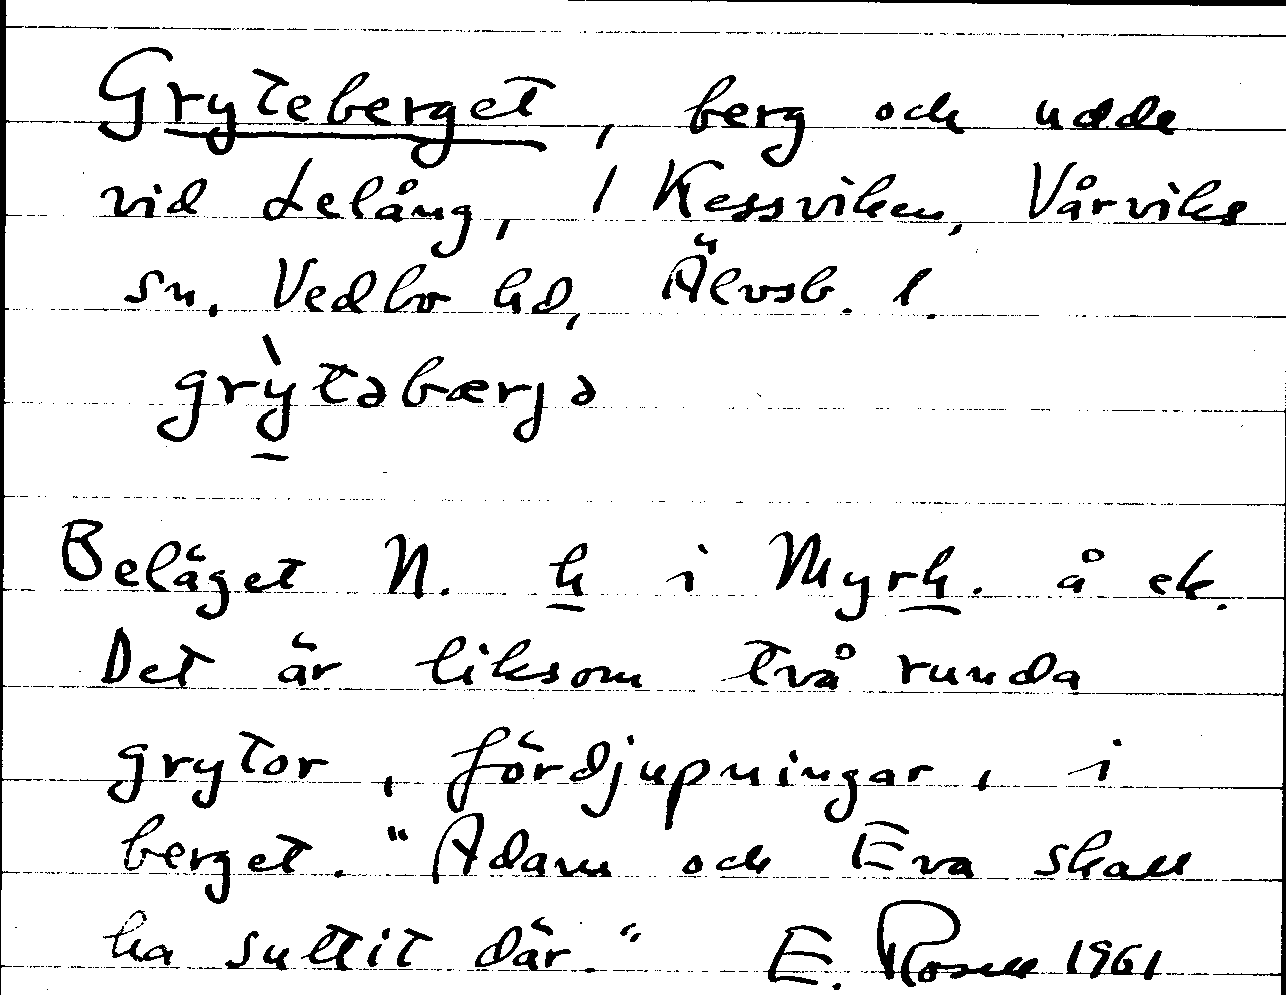 Gryteberget, berg och udde
vid Lelång, / Kessviken, Vårviks
sn. Vedbo hd, Älvsb. l.
grỳtəbærjə
Beläget N. h i Myrh. å ek.
Det är liksom två runda
grytor, fördjupningar, i
berget. "Adam och Eva skall
ha suttit där." E. Rosell 1961